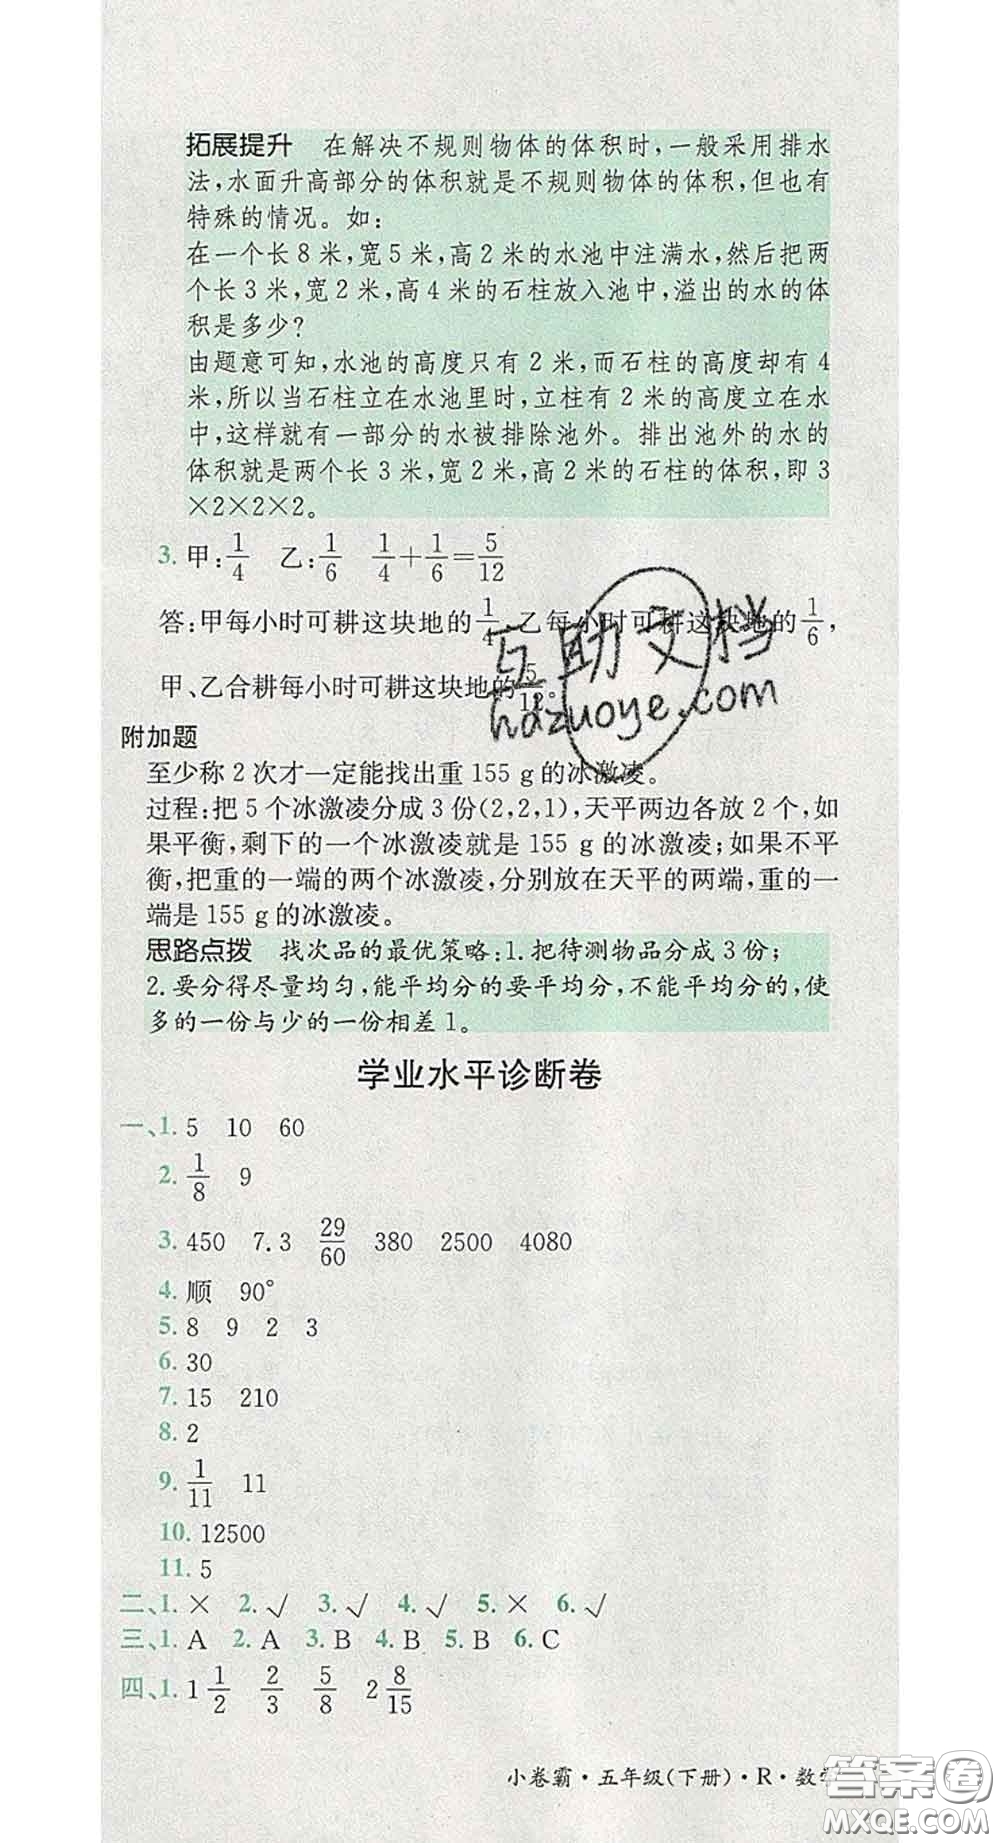 拓展提升 在解决不规则物体的体积时,一般采用排水
法,水面升高部分的体积就是不规则物体的体积,但也有
特殊的情况。如:
在一个长8米,宽5米,高2米的水池中注满水,然后把两
个长3米,宽2米,高4米的石柱放入池中,溢出的水的体
积是多少?
由题意可知,水池的高度只有2米,而石柱的高度却有4
米,所以当石柱立在水池里时,立柱有2米的高度立在水
中,这样就有一部分的水被排除池外。排出池外的水的
体积就是两个长3米,宽2米,高2米的石柱的体积,即3
×2×2×2。
3. 甲:1/4 乙:1/6 1/4+1/6=5/12
答:甲每小时可耕这块地的1/4,乙每小时可耕这块地的1/6,
甲、乙合耕每小时可耕这块地的5/12。
互助文档
hdzuoye.com
附加题
至少称2次才一定能找出重155 g的冰激凌。
过程:把5个冰激凌分成3份(2,2,1),天平两边各放2个,如
果平衡,剩下的一个冰激凌就是155 g的冰激凌;如果不平
衡,把重的一端的两个冰激凌,分别放在天平的两端,重的一
端是155 g的冰激凌。
思路点拨 找次品的最优策略:1.把待测物品分成3份;
2.要分得尽量均匀,能平均分的要平均分,不能平均分的,使
多的一份与少的一份相差1。
学业水平诊断卷
一、1. 5 10 60
2. 1/8 9
3. 450 7.3 29/60 380 2500 4080
4. 顺 90°
5. 8 9 2 3
6. 30
7. 15 210
8. 2
9. 1/11 11
10. 12500
11. 5
二、1. × 2. √ 3. √ 4. √ 5. × 6. √
三、1. A 2. A 3. B 4. B 5. B 6. C
四、1. 1 1/2 2/3 5/8 2 8/15
小卷霸·五年级(下册)·R·数学
答案圈
MXQE.COM